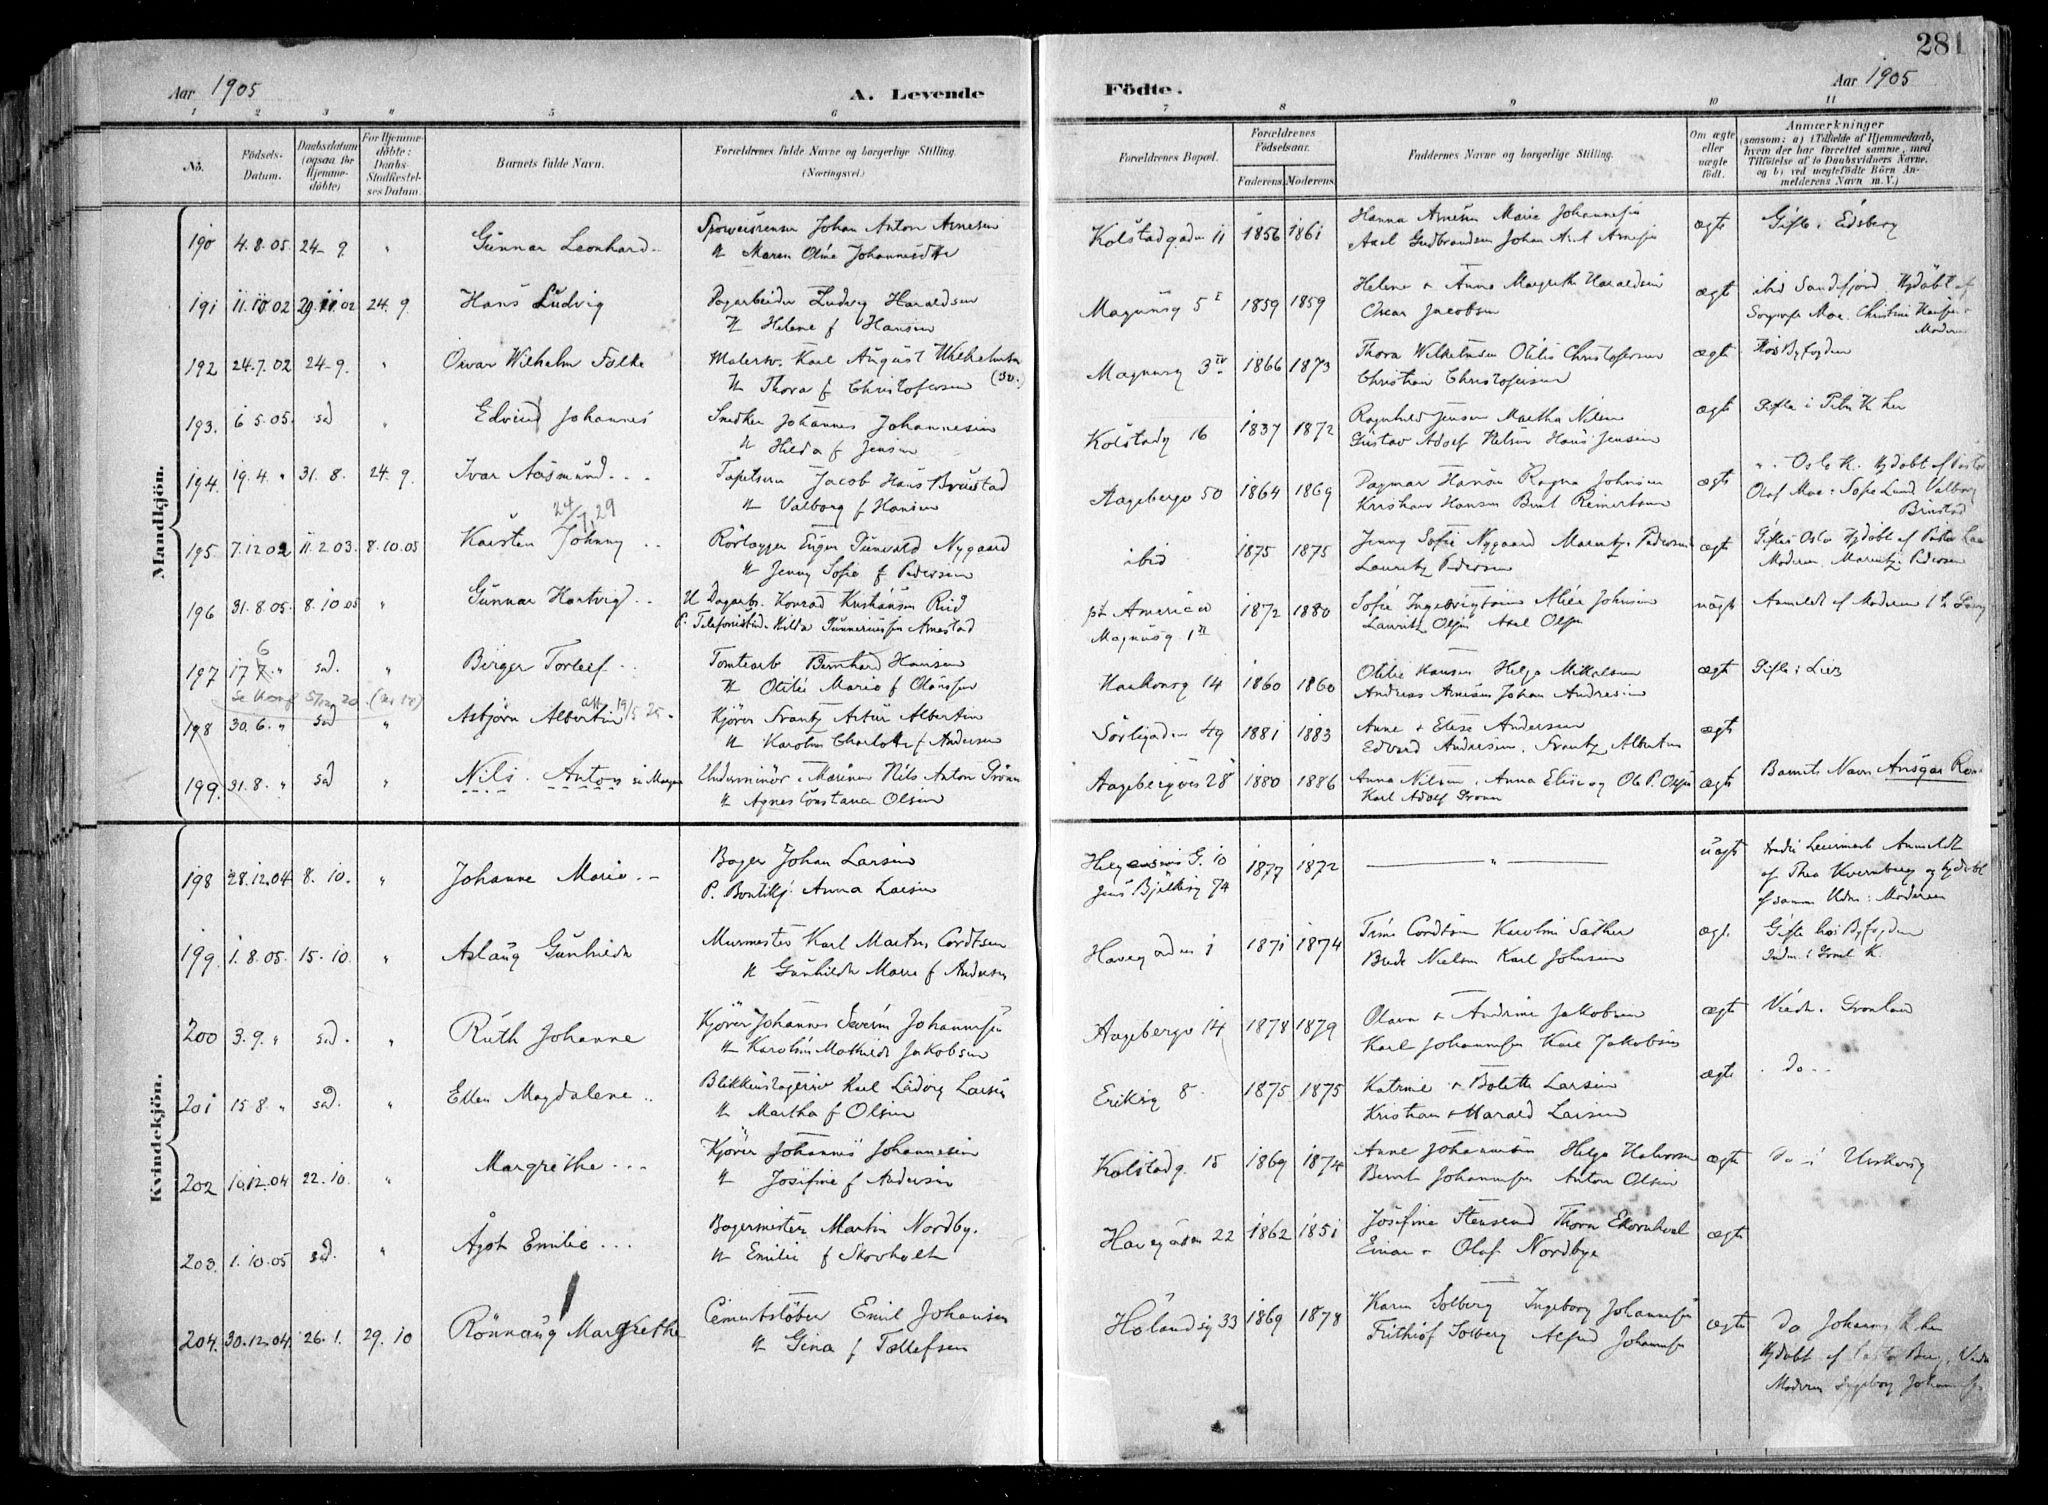 281
Aar 1905
A. Levende
Födte.
Aar 1905
1 2 3 4 5 6 7 8 9 10 11
No.
Födsels-Datum.
Daabsdatum (ogsaa for Hjemme-döbte)
For Hjemme-döbte: Daabs-Stadfæstel-ses Datum.
Barnets fulde Navn.
Forældrenes fulde Navne og borgerlige Stilling.
(Næringsvei.)
Forældrenes Bopæl.
Forældrenes Födselsaar.
Faderens. Moderens.
Faddernes Navne og borgerlige Stilling.
Om ægte eller uægte födt.
Anmærkninger
(saasom: a) i Tilfælde af Hjemmedaab, hvem der har forrettet samme, med Tilföielse af to Daabsvidners Navne. og b) ved uægtefödte Börn An-melderens Navn m. V.)
Mandkjön.
190 4.8.05 24-9 " Gunnar Leonhard
Johan Anton Arnesen
Maren Oline
Kolstadgaden 11 1856 1861
Hanna Arnesen Marie Johannesen
Axel Gudbrandsen Johan Arnesen
ægte Gifte i Eidsberg
191 11.10.02 29.11.02 24.9. Hans Ludvig
Dagarbeider Ludvig Haraldsen
H Helene f Hansen
Magnusg 5 1859 1859
Helene + Anna Margrethe Haraldsen
Oscar Jacobsen
ægte ibid Sandefjord
192 24.7.02 24-9. " Wilhelm Falke
Malersv. Karl August Wilhelmsen (Sv.)
H Thora f Christofersen
Magnusg 3 IV 1866 1873
Thora Wilhelmsen Otilie Christofersen
Christian Christofersen
ægte Hos Byfogden
193. 6 5.05. sad " Edvind Johannes
Snedker Johannes Johannesen
H Hilda f Jensen
Kolstadg 16 1837 1872
Ragnhild Jensen Martha Nilsen
Gustav Adolf Nelsen Hans Jensen
ægte Gifte i Petri K her
194. 19.4. " 31.8. 24.9. Ivar Aasmund
Jacob Hans Brustad
H Valborg f Hansen
Aagebergv 50 1864 1869
Dagmar Hansen Ragna Johnsen
Kristian Hansen Bernt Reinertsen
ægte " Oslo K. Hjdöbt af Pastor
Olaf Moe: Sofie Lund Valborg
Brustad
24/7.29
195 7.12 02 11.2.03. 8.10.05 Karsten Johnny
Rörlægger Eugen Gunvald Nygaard
H Jenny Sofie f Pedersen
ibid 1875 1875
Jenny Sofie Nygaard Marentz. Pedersen
Lauritz Pedersen
ægte Gifte i Oslo Hjdöbt af Pastor
Moderen, Marentz. Pedersen
196 31.8.05. 8.10 05 " Gunnar Hartvig
U Dagarb. Konrad Kristiansen Rud
P. Telefonistinde Hilda Arnestad
pt America
Magnusg 1 1872 1880
Sofie Ingebrigtsen Alice Johnsen
Lauritz Olsen Axel Olsen
uægte Anmeldt af Moderen
6
197 17 7. " sad. " Birger Torleif
Tomtearb Bernhard Hansen
H Otilie Marie f Olaussen
Haakonsg 14 1860 1860
Otilie Hansen Helga Mikalsen
Andreas Arnesen Johan Andresen
ægte Gifte i Lier
198 30.6. " sad " Asbjörn Albertin att 19/5 25
Kjörer Frantz Artur Albertin
H Karoline Charlotte f Andersen
Sörligaden 49 1881 1883
Anne + Elise Andersen
Edvard Andresen. Frantz Albertin
ægte
199. 31.8. " sad " Nils Anton se Margen
Underminör i Marinen Nils Anton
H Agnes Constance Olsen
Aagebergveien 28 1880 1886
Anna Nilsen, Anna Elise og Ole P. Olsen
Karl Adolf
ægte Barnets Navn Ansgar
Kvindekjön.
198 28.12.04 8.10. " Johanne Marie
Bager Johan Larsen
P. Anna Larsen
Jens Bjelkesg 74 1877 1872
"
uægte
af Thea Kvernberg og hjdöbt
af samme Vidn: Moderen
199. 1.8.05. 15.10. " Aslaug Gunhilda
Murmester Karl Martin Cordtsen
H Gunhilda Marie f Andersen
Havegaden 1 1871 1874
Trine Cordtsen Karoline Sæther
Brede Nielsen Karl Johnsen
ægt. Gifte hos Byfogden
200 3.9. " sad. " Ruth Johanne
Kjörer Johannes Severin Johannesen
H Karoline Mathilde Jakobsen
Aagebergv 14 1878 1879
Olava + Andrine Jakobsen
Karl Johannesen Karl Jakobsen
ægte Viede i Grönland
201 15.8. " sad. " Ellen Magdalene
Karl Ludvig Larsen
H Martha f Olsen
Eriksg 8 1875 1875
Katrine + Bolette Larsen
Kristian + Harald Larsen
ægte do
202 10.12.04 22.10. " Margrethe
Kjörer Johannes Johannesen
H Josefine f Andersen
Kolstadg. 15 1869 1874
Anne Johannesen Helga Halvorsen
Bernt Johannesen Anton Olsen
ægte do i Urskoug
203. 1.10.05 sad. " Ågot Emilie
Bagermester Martin Nordby.
H Emilie f Skovholt
Havegaden 22 1862 1851
Josefine Stensrud Thora Ekornhoel
Einar + Olaf Nordbye
ægte
204. 30.12.04. 26.1. 29.10 Rönnaug Margrethe
Cementstöber Emil Johansen
H Gina f Tollefsen
Hölandsg 33 1869 1878
Karen Solberg Ingeborg Johannesen
Frithiof Solberg Alfred Johannesen
ægte do Johannes K her
Hjdöbt af Pastor
Moderen Ingeborg Johannesen